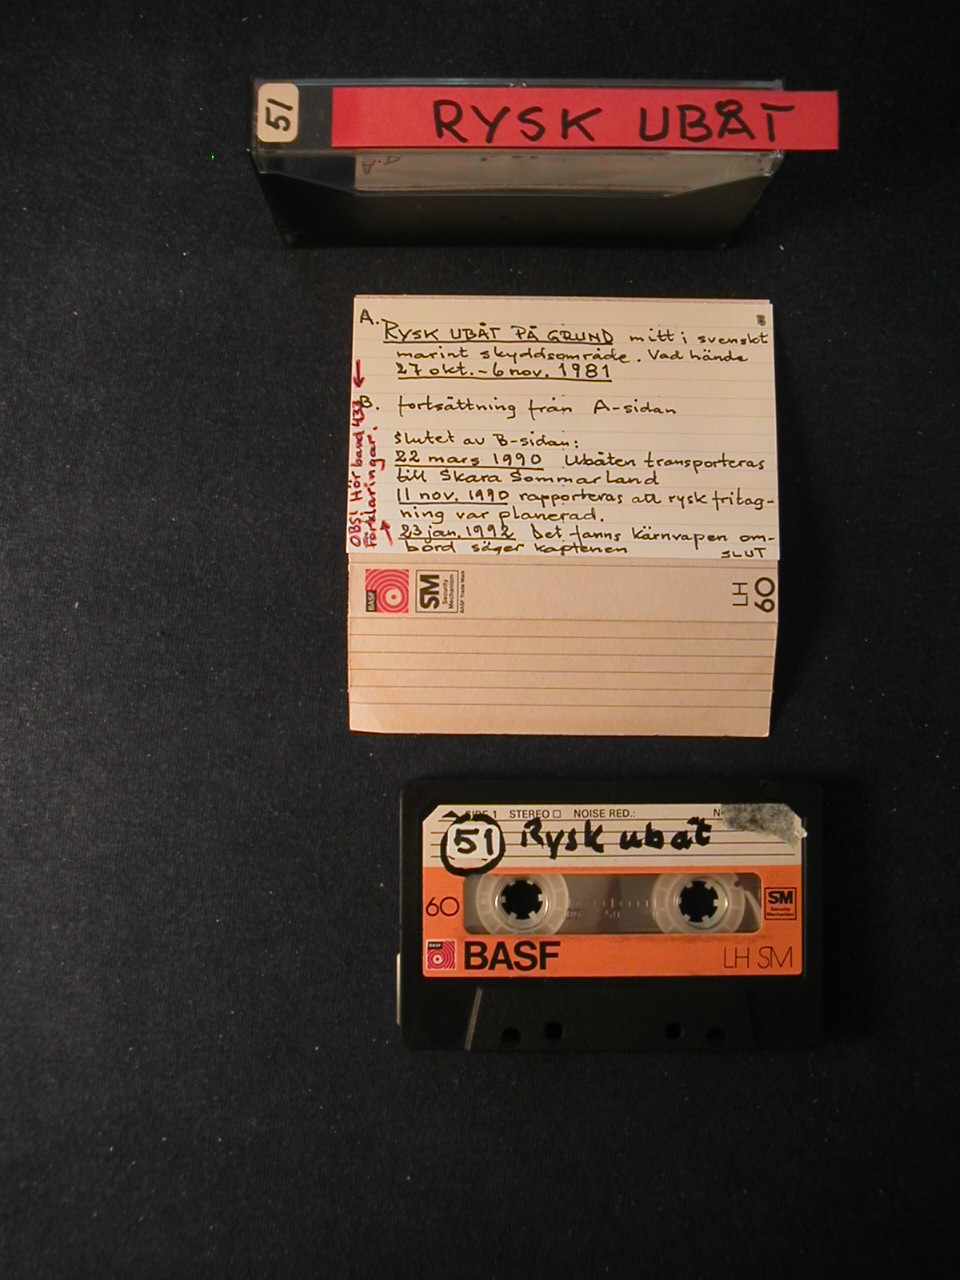 51
RYSK UBÅT
A.
RYSK UBÅT PÅ GRUND mitt i svenskt
marint skyddsområde. Vad hände
27 okt. - 6 nov. 1981
B. fortsättning från A-sidan
Slutet av B-sidan:
22 mars 1990 Ubåten transporteras
till Skara Sommarland
11 nov. 1990 rapporteras att rysk fritag-
ning var planerad.
23 jan. 1992 Det fanns kärnvapen om-
bord säger kaptenen SLUT
OBS! Hör band 433
förklaringar.
BASF
SM
Security
Mechanism
BASF Trade Mark
LH
60
SIDE 1 STEREO NOISE RED.:
51 Rysk ubåt
60
SM
Security
Mechanism
BASF
BASF LH SM